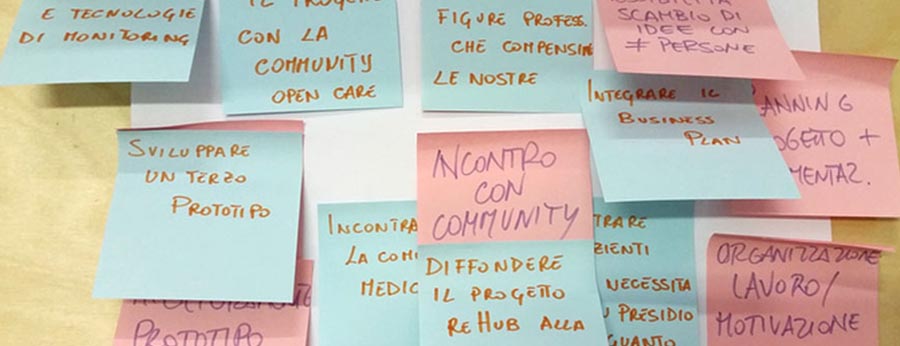 E TECNOLOGIE
DI MONITORING
IL PROGETTO
CON LA
COMMUNITY
OPEN CARE
FIGURE PROFESS.
CHE COMPENSINO
LE NOSTRE
SCAMBIO DI
IDEE CON
≠ PERSONE
INTEGRARE IL
BUSINESS
PLAN
ANNING
OGETTO +
MENTAZ.
SVILUPPARE
UN TERZO
PROTOTIPO
INCONTRO
CON
COMMUNITY
INCONTRA
LA COM
MEDIC
DIFFONDERE
IL PROGETTO
REHUB ALLA
TRARE
ZIENTI
NECESSITA
PRESIDIO
QUANTO
ORGANIZZAZIONE
LAVORO/
MOTIVAZIONE
PROTOTIPO